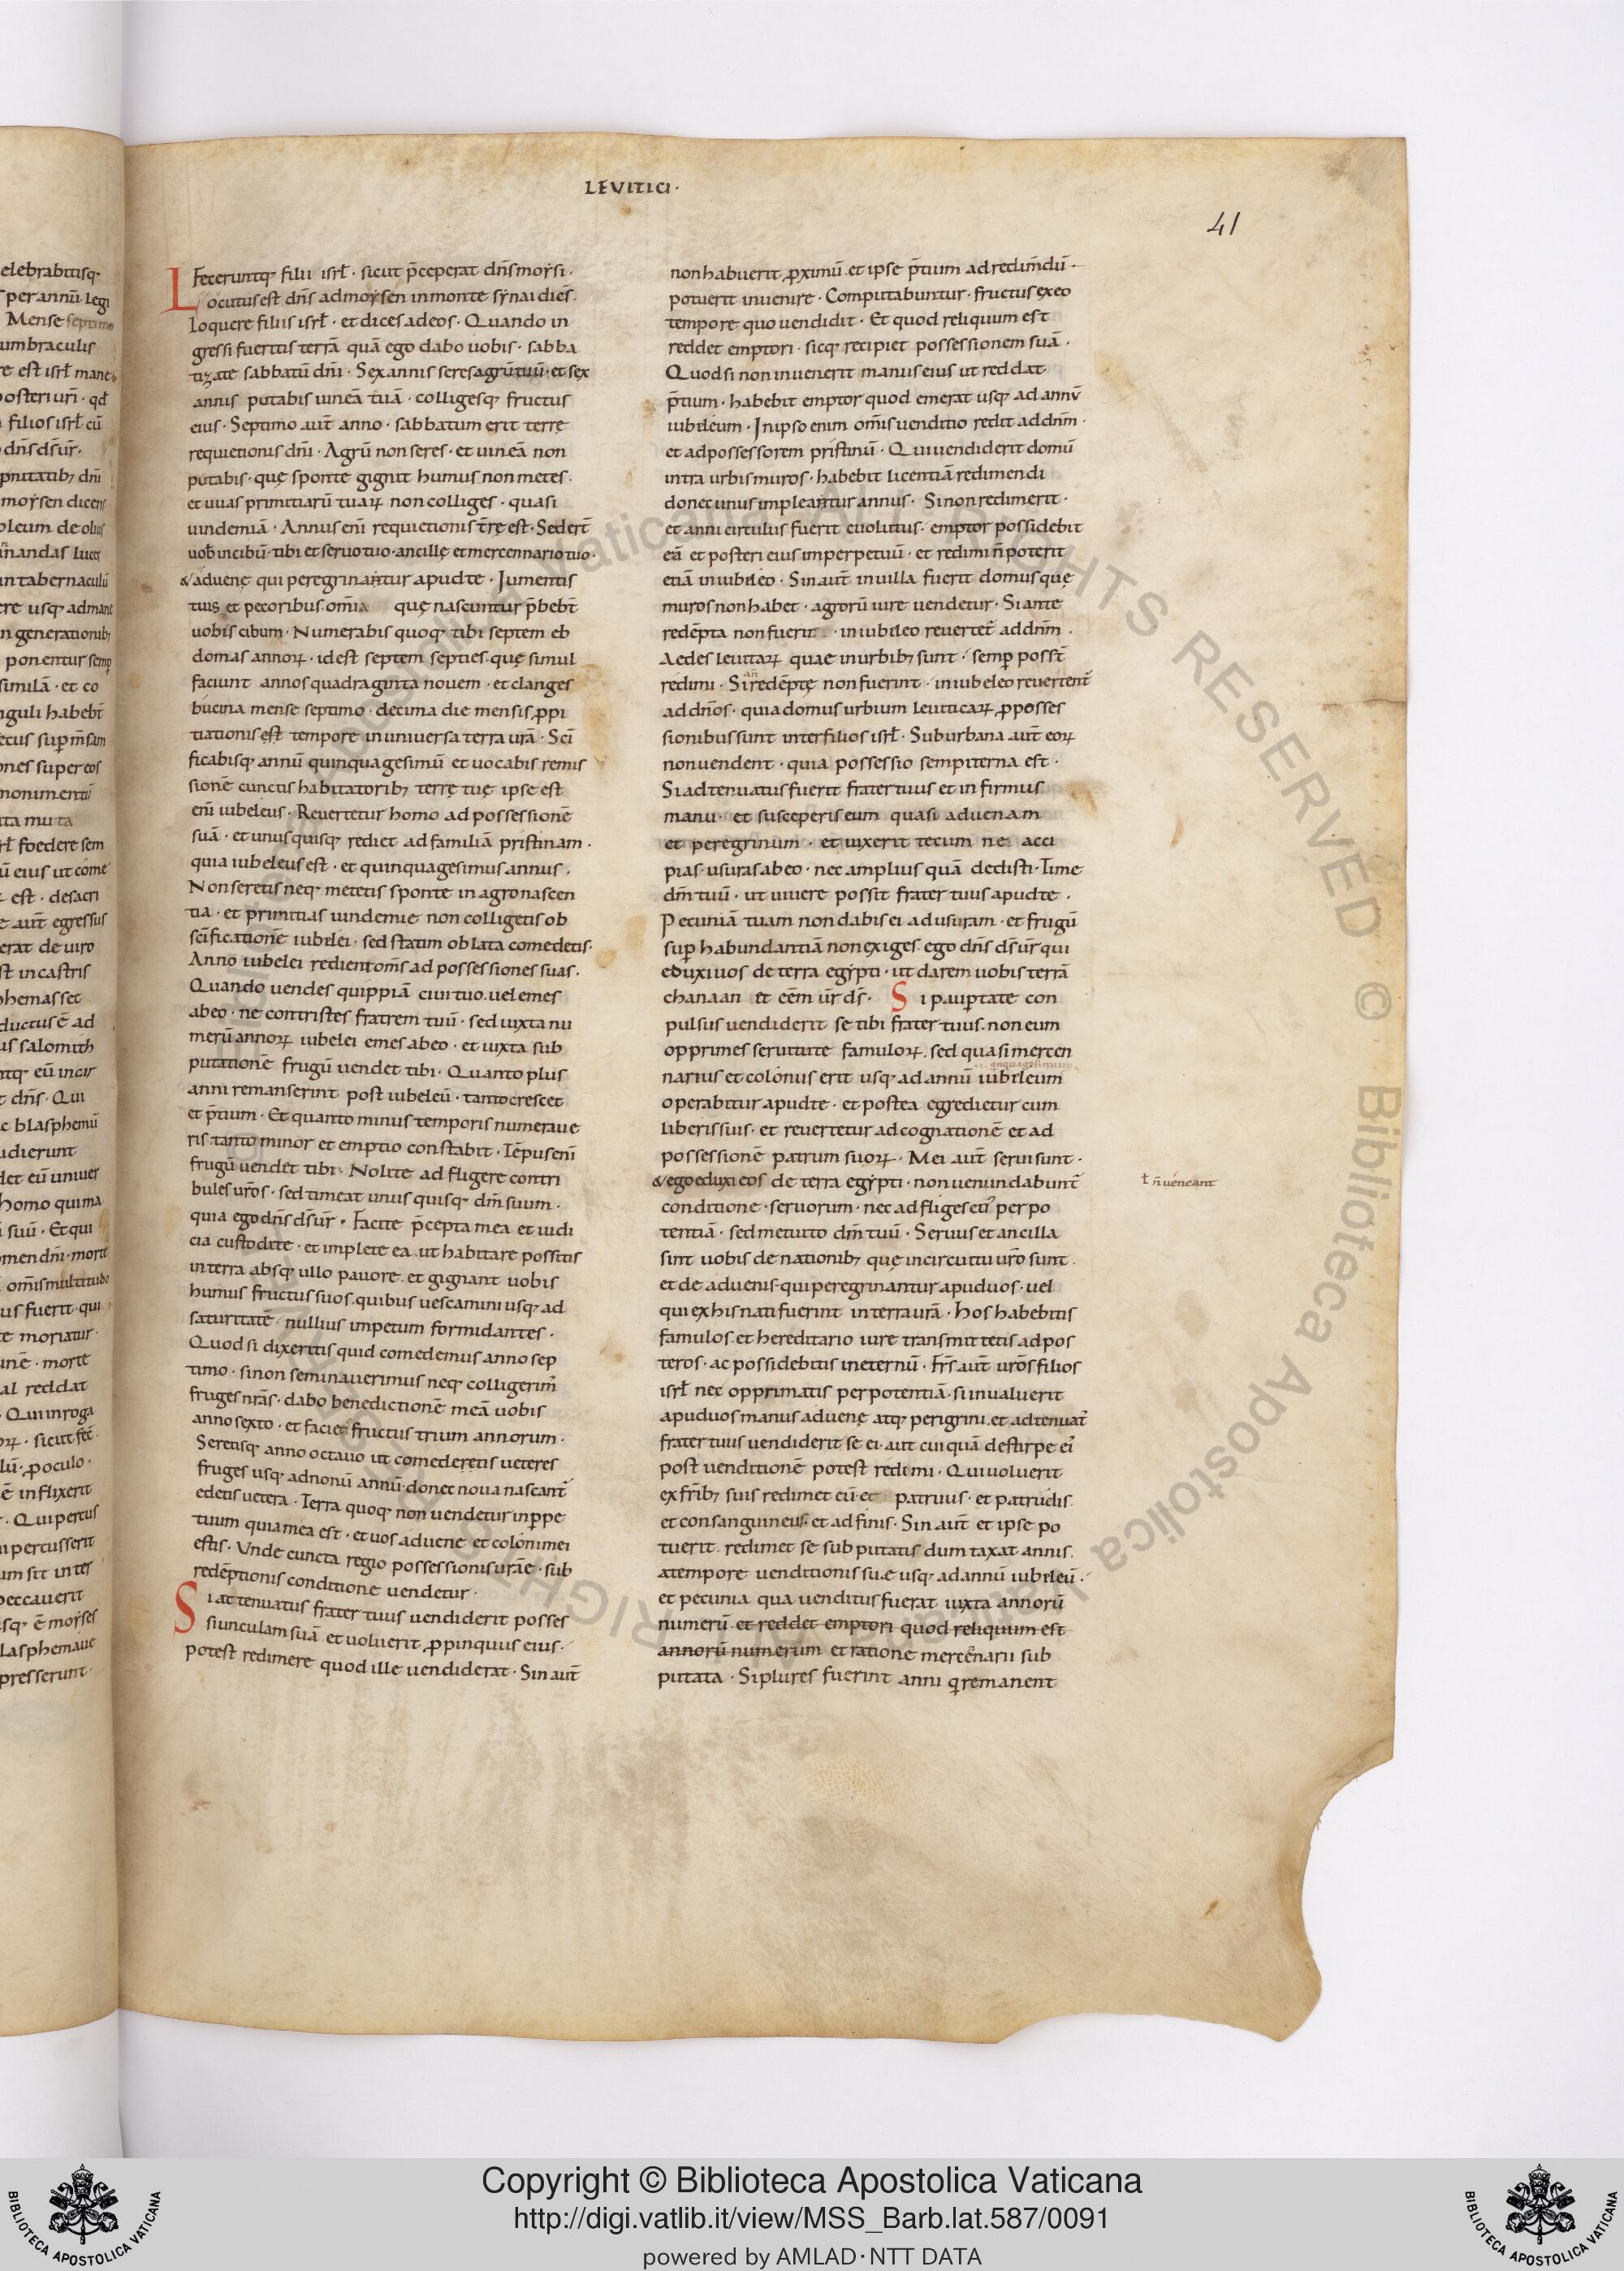 LEVITICI·
41
elebrabitisq;
sperannū legi
Mense septimo
umbraculis
re est isrł mane
posteri urī · qđ
filios isrł cū
dn̄s ds̄ ur̄·
moysen dicens
oleum de oliuis
in tabernaculū
ere usq; ad mane
n generationib;
ponentur semp
similā · et co
nguli habebt̄
ectus sup m̄sam
ones super eos
monimentū
ita muta
rł foedere sem
ū eius ut come
est · desacri
e aut̄ egressus
erat de uiro
st in castris
phemasset
ductus ē ad
us salomith
ntq; eū incar
t dn̄s · Qui
c blasphemū
udierunt
det eū uniuer
homo qui ma
suū · Et qui
omen dn̄i · morte
omīs multitudo
us fuerit · qui
te moriatur·
unē · morte
al reddat
Qui inroga
sicut fec̄·
lū · p oculo·
ē inflixerit
Qui percus
ui percusserit
um sit inter
peccauerit
sq; ē moyses
lasphemaue
presserunt·
Feceruntq; filii isrł · sicut p̄ceperat dn̄s moysi·
Locutus est dn̄s ad moysen in monte synai dicēs·
loquere filiis isrł · et dices ad eos · Quando in
gressi fueritis terrā quā ego dabo uobis · sabba
tizate sabbatū dn̄i · Sex annis seres agrū tuū · et sex
annis putabis uineā tuā · colligesq; fructus
eius · Septimo aut̄ anno · sabbatum erit terrę
requietionis dn̄i · Agrū non seres · et uineā non
putabis · quę sponte gignit humus non metes·
et uuas primitiarū tuaꝝ non colliges · quasi
uindemiā · Annus enī requietionis t̄rę est · Sed er̄t
uob̄ in cibū · tibi et seruo tuo · ancillę et mercennario tuo·
& aduenę qui peregrinantur apud te · Jumentis
tuis et pecoribus om̄ia quę nascuntur p̄bebt̄
uobis cibum · Numerabis quoq; tibi septem eb
domas annoꝝ · id est septem septies quę simul
faciunt annos quadraginta nouem · et clanges
bucina mense septimo · decima die mensis ꝓpi
tiationis est tempore in uniuersa terra urā · Scī
ficabisq; annū quinquagesimū et uocabis remis
sionē cunctis habitatorib; terrę tuę ipse est
enī iubeleus · Reuertetur homo ad possessionē
suā · et unusquisq; rediet ad familiā pristinam·
quia iubeleus est · et quinquagesimus annus·
Non seretis neq; metetis sponte in agro nascen
tia · et primitias uindemie non colligetis ob
scīficationē iubilei · sed statim oblata comedetis·
Anno iubelei redient om̄s ad possessiones suas·
Quando uendes quippiā ciui tuo uel emes
ab eo · ne contristes fratrem tuū · sed iuxta nu
merū annoꝝ iubelei emes ab eo · et iuxta sub
putationē frugū uendet tibi · Quanto plus
anni remanserint post iubeleū · tanto crescet
et p̄tium · Et quanto minus temporis numeraue
ris tanto minor et emptio constabit · Tēpus enī
frugū uendet tibi · Nolite adfligere contri
bules ur̄os · sed timeat unusquisq; dm̄ suum·
quia ego dn̄s ds̄ ur̄ · Facite p̄cepta mea et iudi
cia custodite · et implete ea ut habitare possitis
in terra absq; ullo pauore et gignant uobis
humus fructus suos quibus uescamini usq; ad
saturitatē · nullius impetum formidantes·
Quod si dixeritis quid comedemus anno sep
timo · si non seminauerimus neq; colligerim̄
fruges nrās · dabo benedictionē meā uobis
anno sexto · et faciet fructus trium annorum·
Seretisq; anno octauo ut comederetis ueteres
fruges usq; ad nonū annū · donec noua nascant̄
edetis uetera · Terra quoq; non uendetur in ꝑpe
tuum quia mea est · et uos aduene et coloni mei
estis · Unde cuncta regio possessionis urāe · sub
redēptionis conditione uendetur·
Si attenuatus frater tuus uendiderit posses
siunculam suā et uoluerit ꝓpinquus eius·
potest redimere quod ille uendiderat · Sin aut̄
non habuerit ꝓximū et ipse p̄tium ad redimdū·
potuerit inuenire · Computabuntur · fructus ex eo
tempore quo uendidit · Et quod reliquum est
reddet emptori · sicq; recipiet possessionem suā·
Quod si non inuenerit manus eius ut reddat
p̄tium · habebit emptor quod emerat usq; ad annū
iubileum · In ipso enim om̄is uenditio redit ad dn̄m·
et ad possessorem pristinū · Qui uendiderit domū
intra urbis muros · habebit licentiā redimendi
donec unus impleantur annus · Si non redimerit·
et anni circulus fuerit euolutus · emptor possidebit
eā et posteri eius imperpetuū · et redimi n̄ poterit
etiā in iubileo · Sin aut̄ in uilla fuerit domus quę
muros non habet · agrorū iure uendetur · Si ante
redēpta non fuerit · in iubileo reuertet̄ ad dn̄m·
Aedes leuitaꝝ quae in urbib; sunt · semꝑ posst̄
redimi · Si redēptę non fuerint · in iubeleo reuertent̄
ad dn̄os · quia domus urbium leuiticaꝝ ꝓ posses
sionibus sunt inter filios isrł · Suburbana aut̄ eoꝝ
non uendent · quia possessio sempiterna est·
Si adtenuatus fuerit frater tuus et infirmus
manu · et susceperis eum quasi aduenam
et peregrinum · et uixerit tecum ne acci
pias usuras ab eo · nec amplius quā dedisti · Time
dm̄ tuū · ut uiuere possit frater tuus apud te·
Pecuniā tuam non dabis ei ad usuram · et frugū
suꝑhabundantiā non exiges ego dn̄s ds̄ ur̄ qui
eduxi uos de terra egypti · ut darem uobis terrā
chanaan et eēm ur̄ ds̄· Si paupertate con
pulsus uendiderit se tibi frater tuus non eum
opprimes seruitute famuloꝝ sed quasi mercen
narius et colonus erit usq; ad annū iubileum
operabitur apud te · et postea egredietur cum
liberis suis · et reuertetur ad cognationē et ad
possessionē patrum suoꝝ · Mei aut̄ serui sunt·
& ego eduxi eos de terra egypti · non uenundabunt̄
ł n̄ ueneant
conditione seruorum · nec adfliges eū per po
tentiā · sed metuito dm̄ tuū · Seruus et ancilla
sint uobis de nationib; quę in circuitu uro sunt·
et de aduenis qui peregrinantur apud uos · uel
qui ex his nati fuerint in terra urā · Hos habebitis
famulos et hereditario iure transmittetis ad pos
teros · ac possidebitis in eternū · Fr̄s aut̄ ur̄os filios
isrł nec opprimatis per potentiā · si inualuerit
apud uos manus aduenę atq; perigrini et adtenuat̄
frater tuus uendiderit se ei aut cuiquā de stirpe ei᾽
post uenditionē potest redimi · Qui uoluerit
ex frīb; suis redimet eū et patruus · et patruelis
et consanguineus et adfinis · Sin aut̄ et ipse po
tuerit redimet se subputatis dumtaxat annis
a tempore uenditionis suae usq; ad annū iubileū·
et pecunia qua uenditus fuerat iuxta annorū
numerū et reddet emptori quod reliquum est
annorū numerum et ratione mercennarii sub
putata · Si plures fuerint anni q remanent
Copyright © Biblioteca Apostolica Vaticana
http://digi.vatlib.it/view/MSS_Barb.lat.587/0091
powered by AMLAD·NTT DATA
BIBLIOTECA APOSTOLICA VATICANA
BIBLIOTECA APOSTOLICA VATICANA